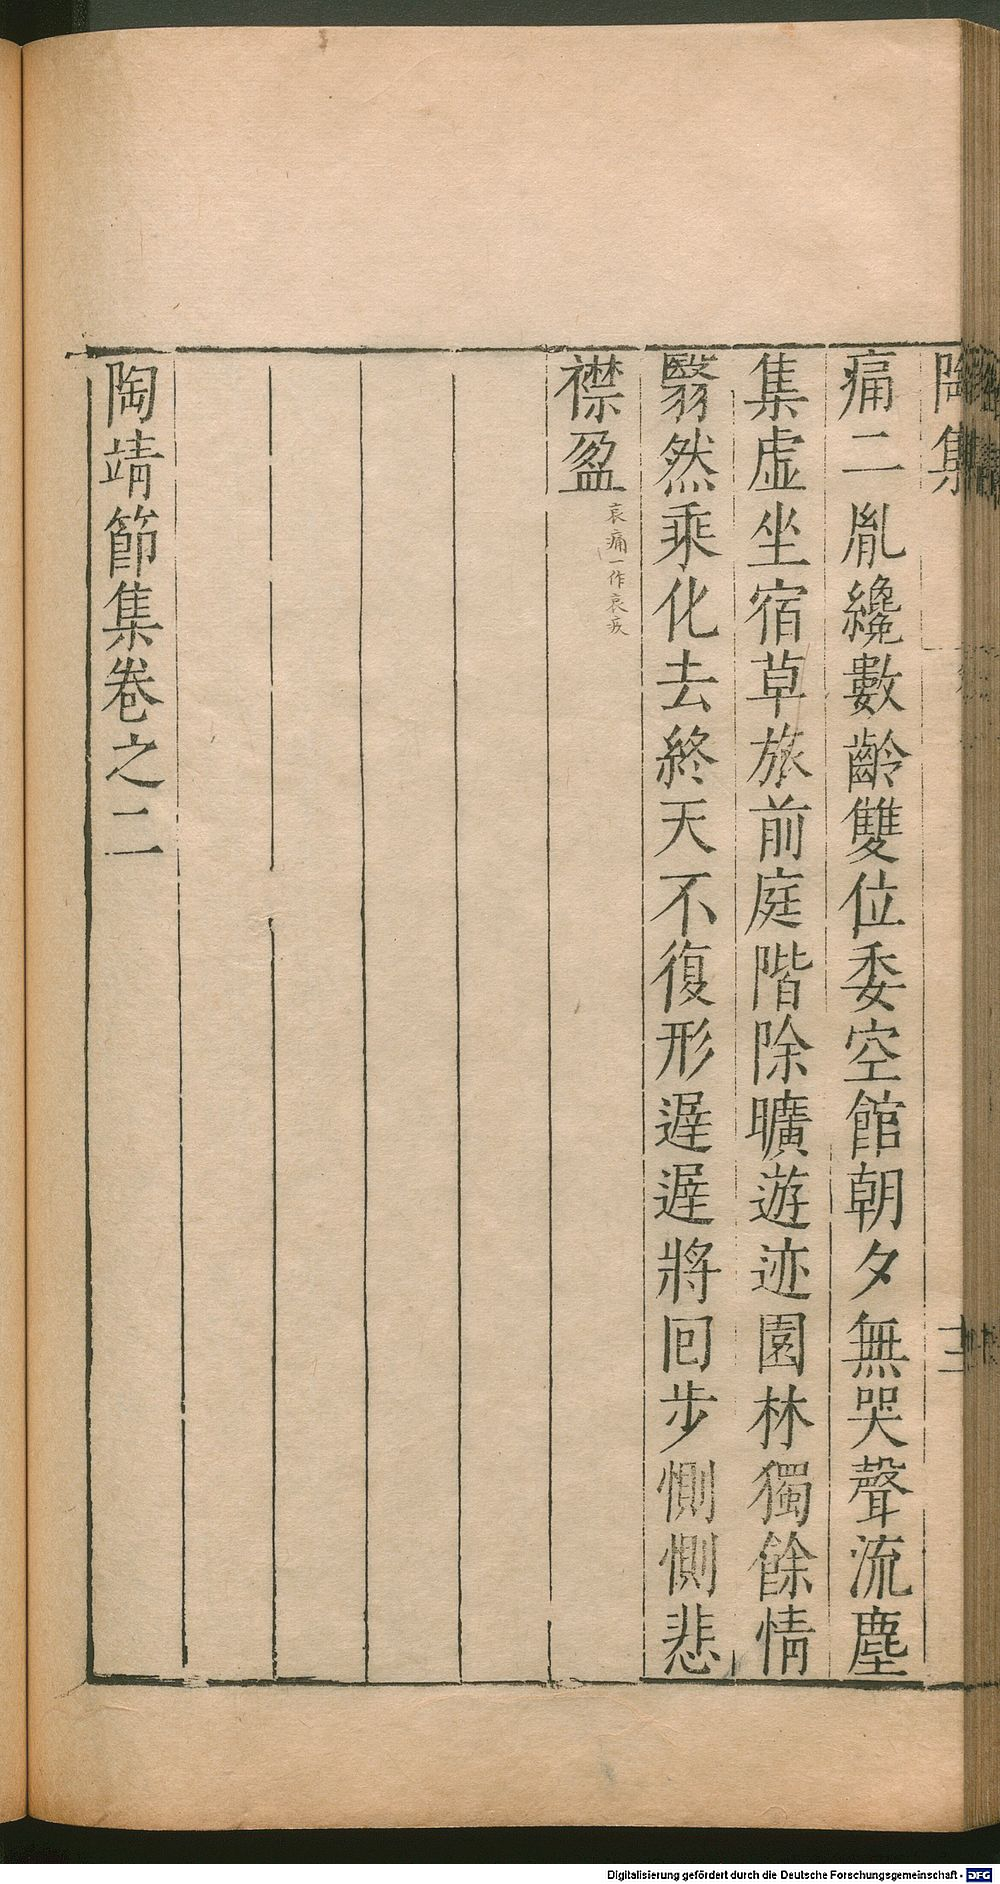 陶集
三
痛二胤纔數齡雙位委空館朝夕無哭聲流塵
集虛坐宿草旅前庭階除曠遊迹園林獨餘情
翳然乘化去終天不復形遲遲將回步惻惻悲
襟盈
哀痛一作哀疚
陶靖節集卷之二
Digitalisierung gefördert durch die Deutsche Forschungsgemeinschaft - DFG